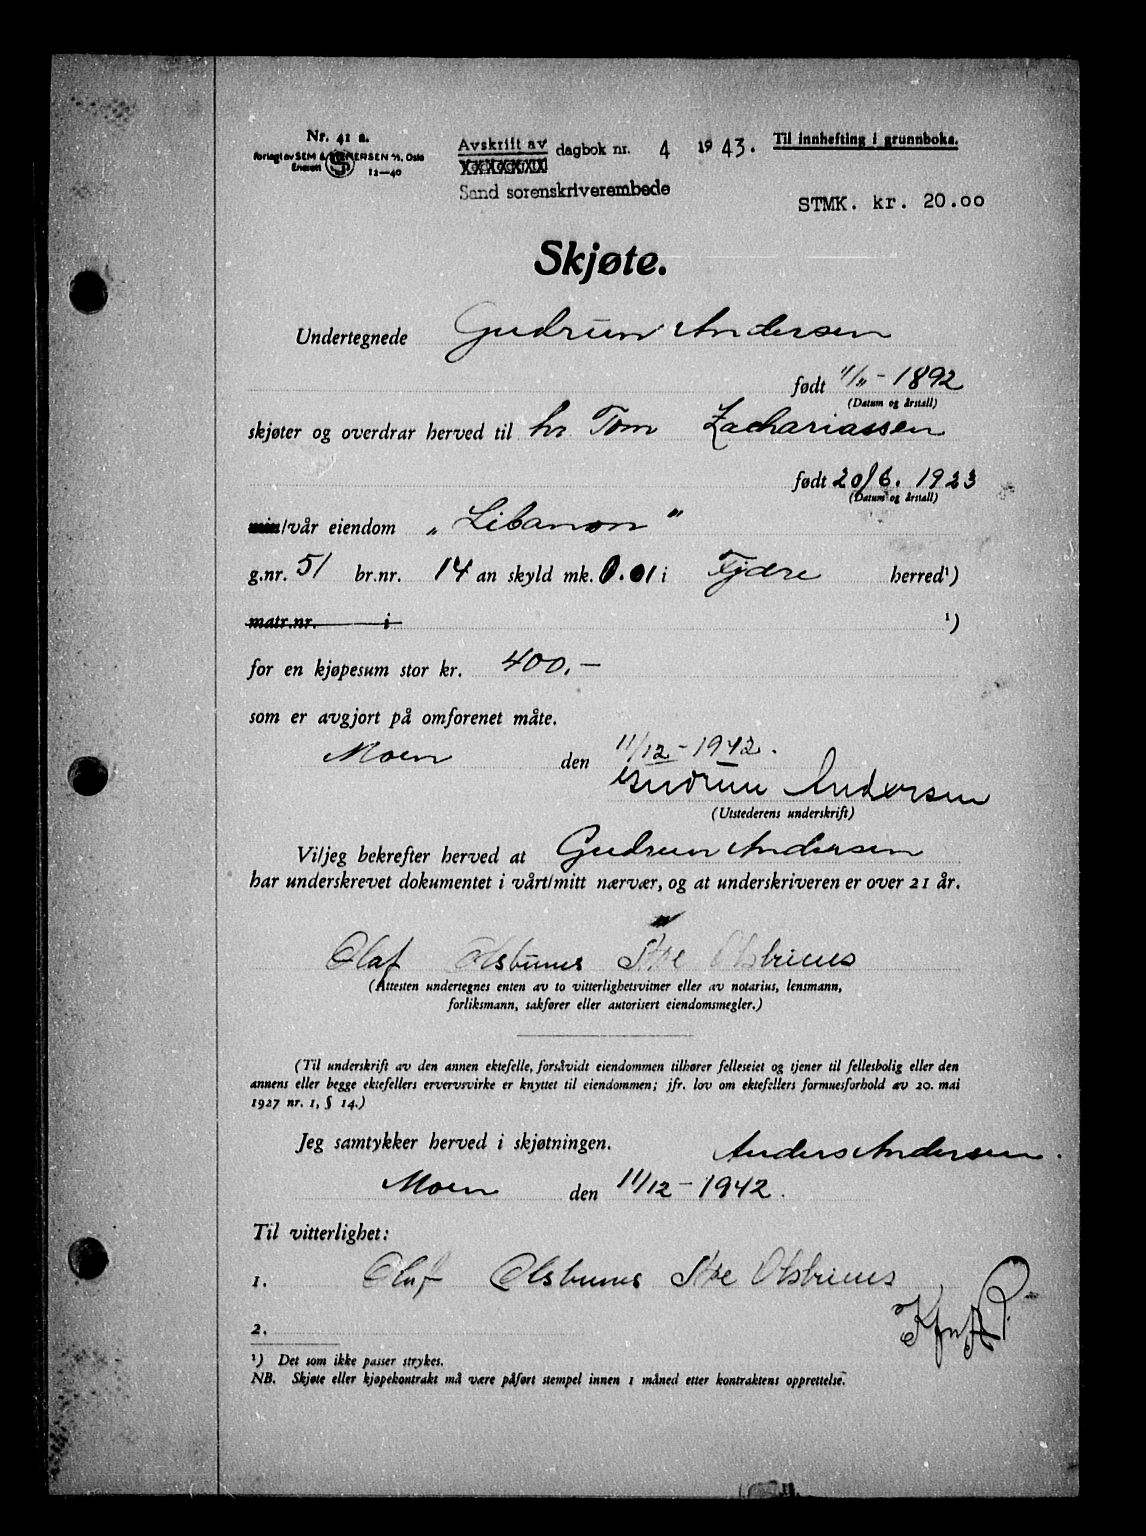 Nr. 41 a.
Forlagt av SEM & STENERSEN A/S, Oslo
Enerett
12—40
Avskrift av dagbok nr. 4 1943.
Sand sorenskriverembede
Til innhefting i grunnboka.
STMK. kr. 20.00
Skjøte.
Undertegnede Gudrun Andersen
født 11/11 - 1892
(Datum og årstall)
skjøter og overdrar herved til hr Tom Zachariassen
født 20/6. 1923
(Datum og årstall)
min/vår eiendom „Libanon"
g.nr. 51 br.nr. 14 an skyld mk. 0.01 i Fjære herred¹)
matr.nr. i ¹)
for en kjøpesum stor kr. 400.—
som er avgjort på omforenet måte.
Moen den 11/12 - 1942.
Gudrun Andersen
(Utstederens underskrift)
Vi/jeg bekrefter herved at Gudrun Andersen
har underskrevet dokumentet i vårt/mitt nærvær, og at underskriveren er over 21 år.
Olaf Olsbines Olsbines
(Attesten undertegnes enten av to vitterlighetsvitner eller av notarius, lensmann,
forliksmann, sakfører eller autorisert eiendomsmegler.)
(Til underskrift av den annen ektefelle, forsåvidt eiendommen tilhører felleseiet og tjener til fellesbolig eller den
annens eller begge ektefellers ervervsvirke er knyttet til eiendommen; jfr. lov om ektefellers formuesforhold av 20. mai
1927 nr. 1, § 14.)
Jeg samtykker herved i skjøtningen.
Anders Andersen.
Moen den 11/12 - 1942.
Til vitterlighet:
1. Olaf Olsbines Olsbines
2.
¹) Det som ikke passer strykes.
NB. Skjøte eller kjøpekontrakt må være påført stempel innen 1 måned etter kontraktens opprettelse.